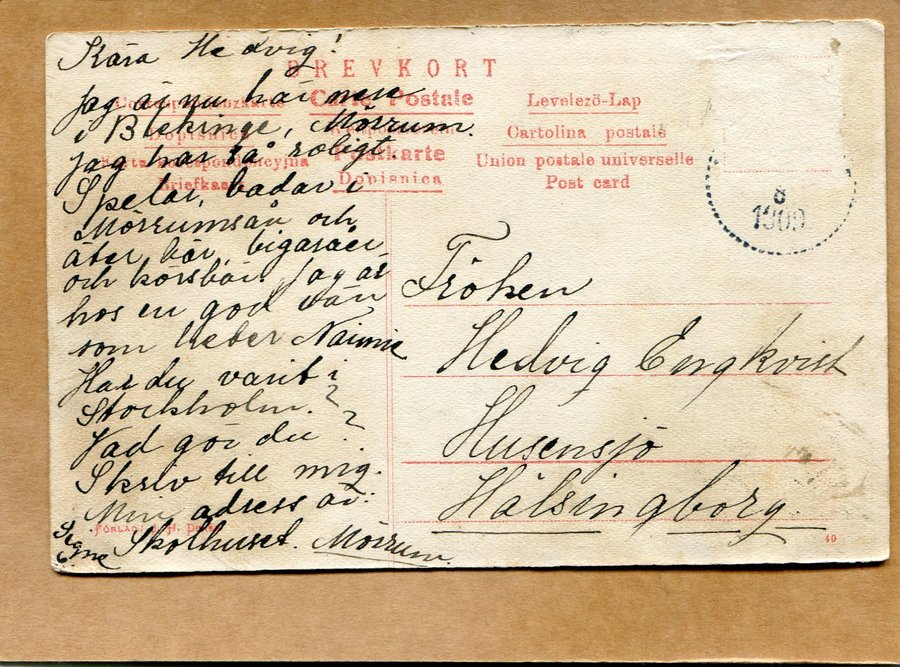 Kära Hedvig!
Jag är nu här nere
i Blekinge, Mörrum.
Jag har så roligt.
Spelar, badar i
Mörrumsån och
äter bär, bigaråer
och körsbär. Jag är
hos en god vän
som heter Naimie
Har du varit i
Stockholm?
Vad gör du?
Skriv till mig.
Min adress är:
Skolhuset. Mörrum.
Signe
BREVKORT
Carte Postale
Levelező-Lap
Dopisnica
Cartolina postale
Postkarte
Union postale universelle
Briefkaart
Dopisnica
Post card
8
1909
Fröken
Hedvig Engkvist
Husensjö
Hälsingborg.
FÖRLAG H.
40